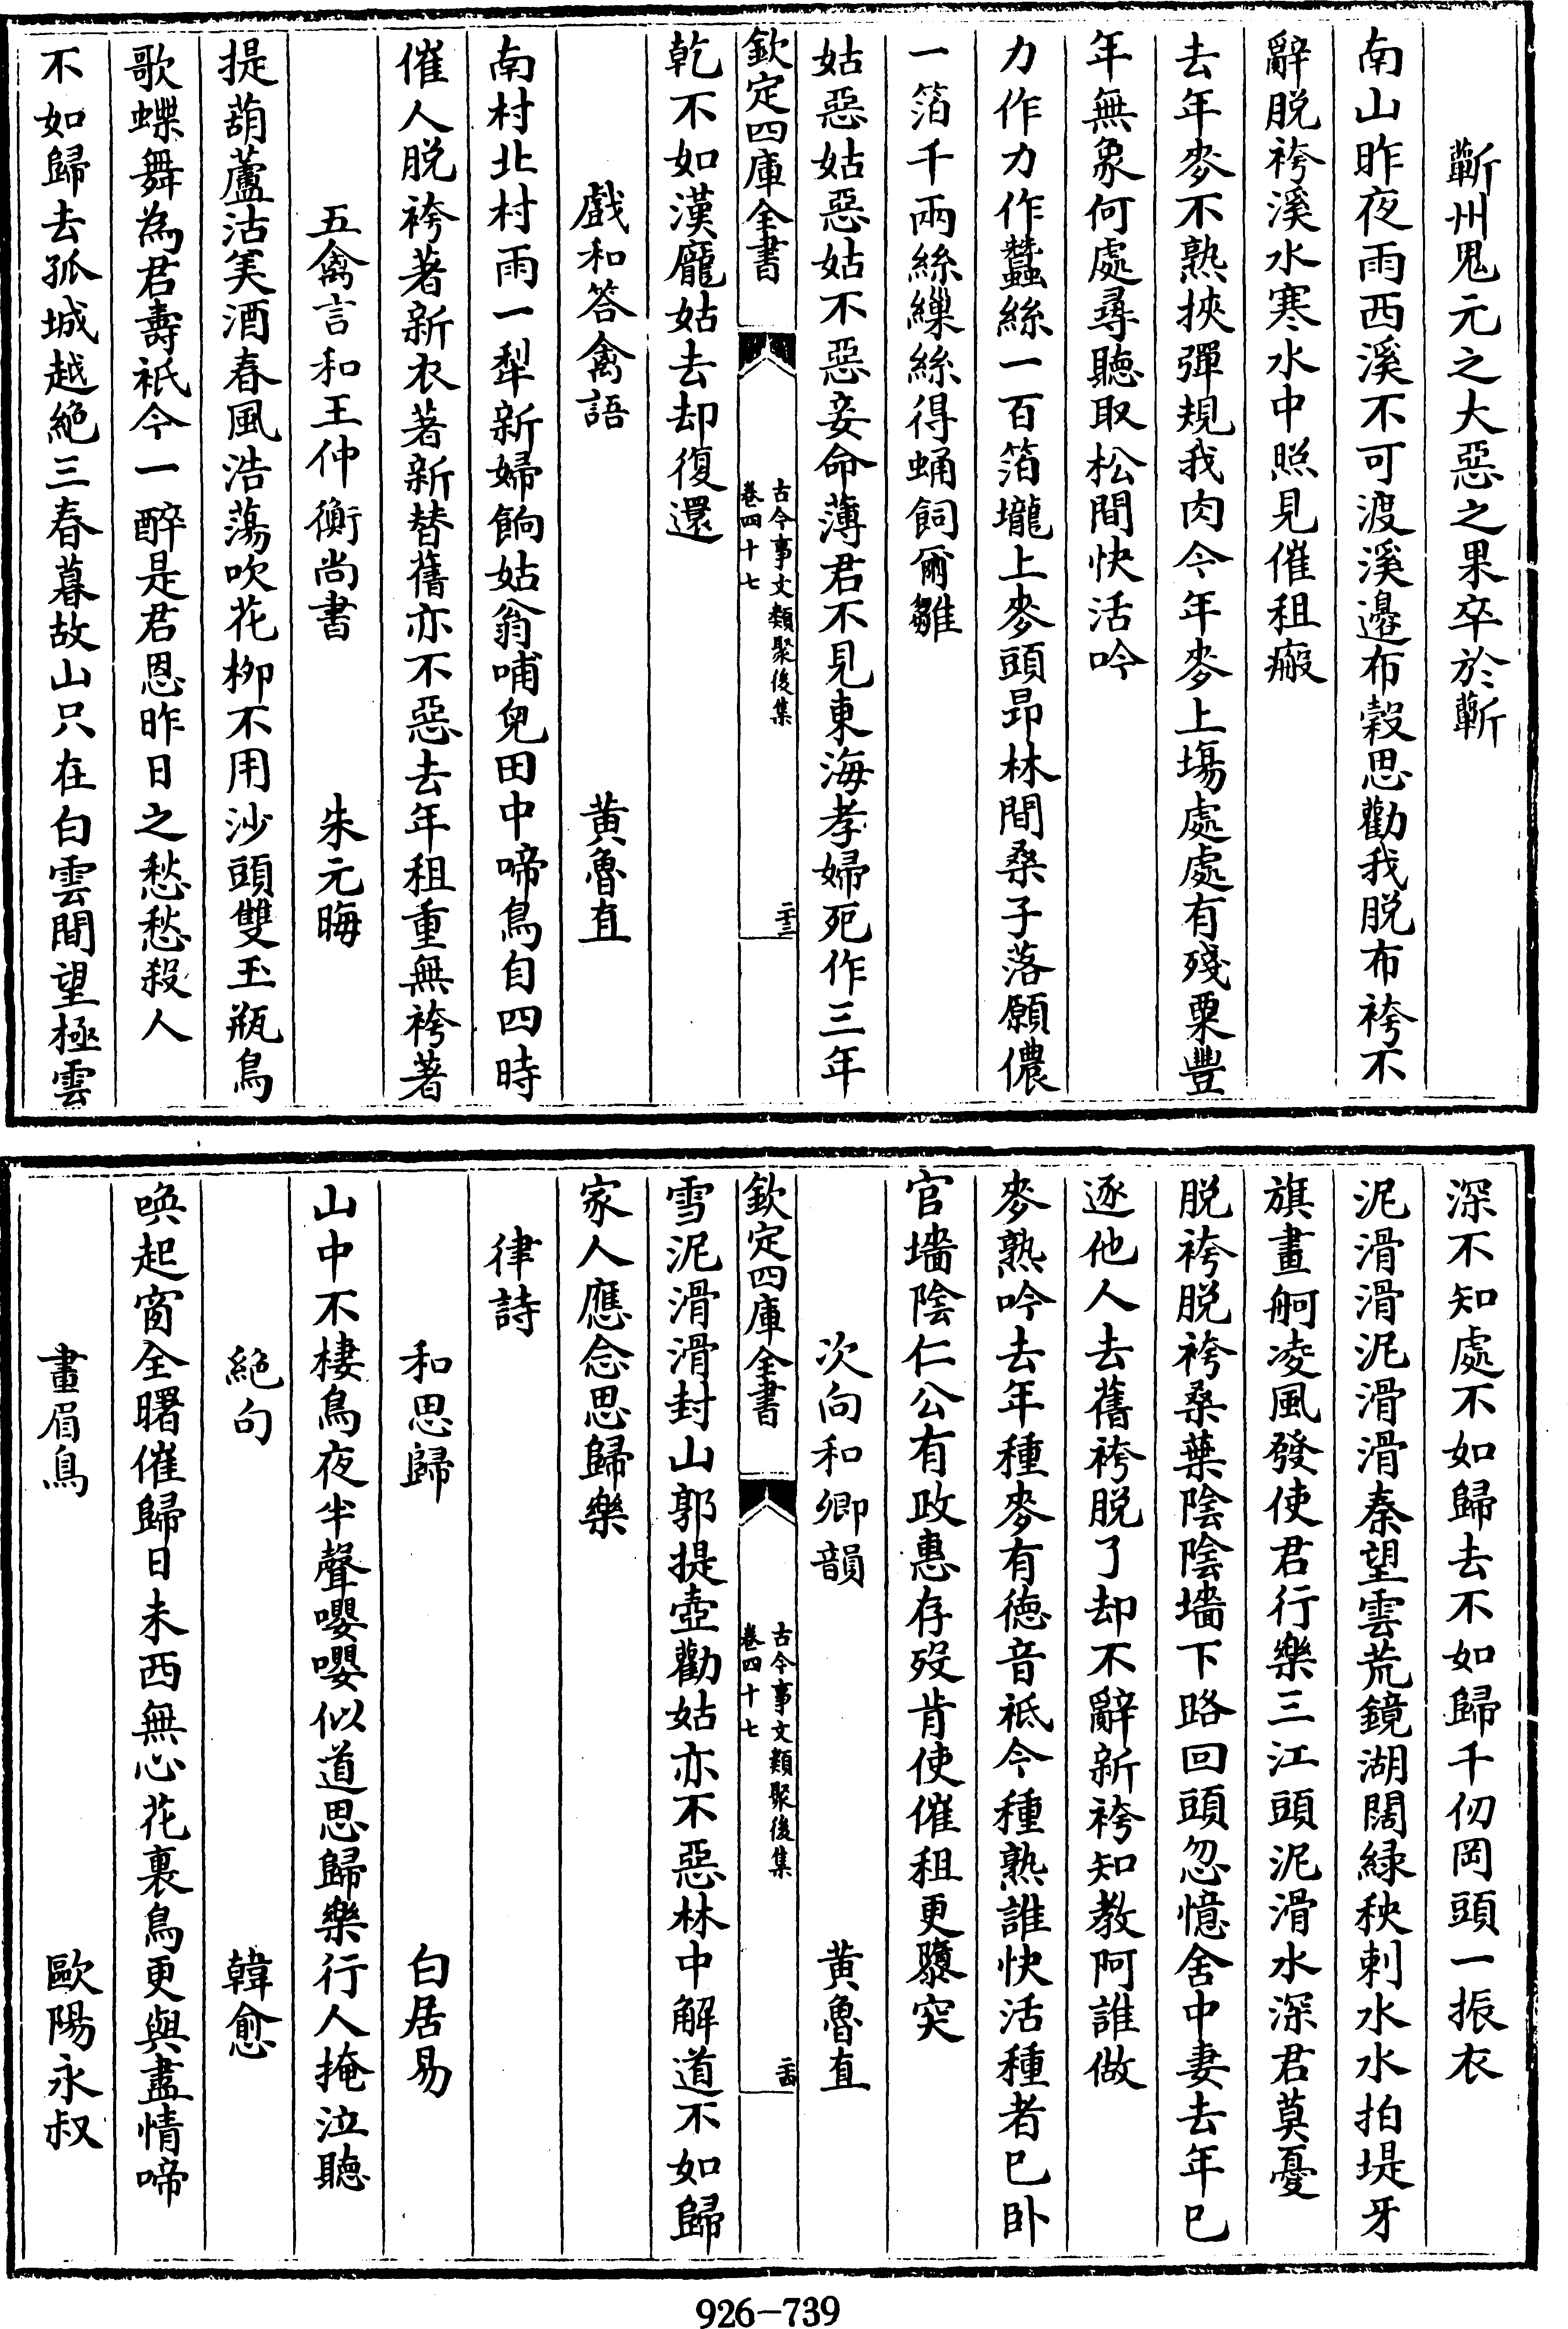 蘄州鬼元之大惡之果卒於蘄
南山昨夜雨西溪不可渡溪邉布榖思勸我脱布袴不
辭脱袴溪水寒水中照見催租瘢
去年麥不熟挾彈規我肉今年麥上塲處處有殘粟豐
年無象何處尋聽取松間快活吟
力作力作蠶絲一百箔壠上麥頭昻林間桑子落願儂
一箔千兩絲繅絲得蛹飼爾雛
姑惡姑惡姑不惡妾命薄君不見東海孝婦死作三年
欽定四庫全書
古今事文類聚後集
卷四十七
二十三
乾不如漢龐姑去却復還
戲和答禽語
黄魯直
南村北村雨一犂新婦餉姑翁哺兒田中啼鳥自四時
催人脱袴著新衣著新替舊亦不惡去年租重無袴著
五禽言和王仲衡尚書
朱元晦
提葫蘆沽美酒春風浩蕩吹花柳不用沙頭雙玉瓶鳥
歌蝶舞為君壽祇今一醉是君恩昨日之愁愁殺人
不如歸去孤城越絶三春暮故山只在白雲間望極雲
深不知處不如歸去不如歸千仞岡頭一振衣
泥滑滑泥滑滑秦望雲荒鏡湖闊緑秧刺水水拍堤牙
旗畫舸凌風發使君行樂三江頭泥滑水深君莫憂
脱袴脱袴桑葉陰陰墻下路回頭忽憶舍中妻去年已
逐他人去舊袴脱了却不辭新袴知教阿誰做
麥熟吟去年種麥有德音祗今種熟誰快活種者已卧
官墻陰仁公有政惠存殁肯使催租更隳突
次向和卿韻
黄魯直
欽定四庫全書
古今事文類聚後集
卷四十七
二十四
雪泥滑滑封山郭提壺勸姑亦不惡林中解道不如歸
家人應念思歸樂
律詩
和思歸
白居易
山中不棲鳥夜半聲嚶嚶似道思歸樂行人掩泣聽
絶句
韓愈
喚起窗全曙催歸日未西無心花裏鳥更與盡情啼
畫眉鳥
歐陽永叔
926-739